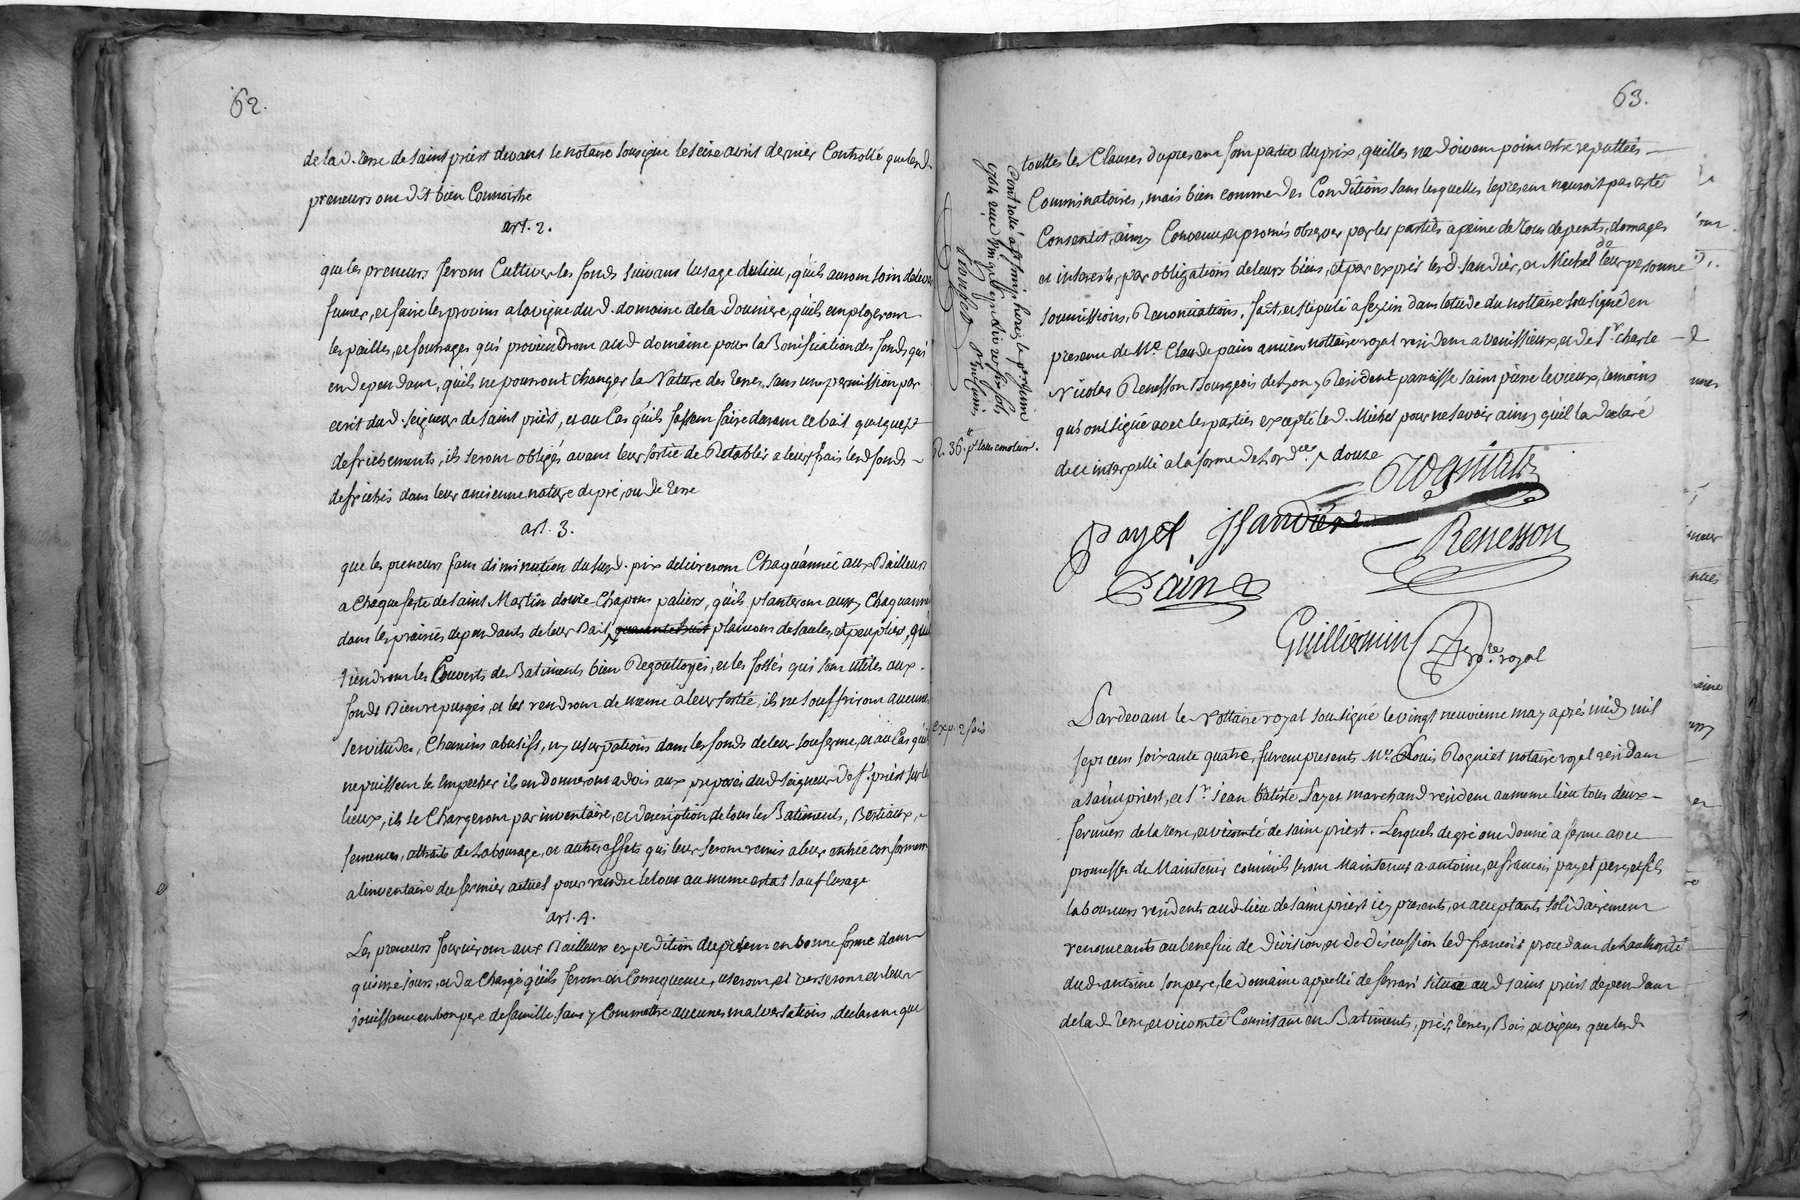 62.
de la d. terre de saint priest devant le notaire sousigné le seize avril dernier Controllé que lesd.
preneurs ont dit bien Connoistre
art. 2.
que les preneurs feront Cultiver les fonds suivant lusage du lieu, quils auront soin de
fumer, et faire les provins a la vigne dud. domaine de la Douniere, quils employeront
les pailles, et fourages qui proviendront aud. domaine pour la Bonification des fonds qui
en dependent, quils ne pourront changer la Nature des terres, sans une permission par
ecrit dud. seigneur de saint priest, et au Cas quils fassent faire durant ce bail quelques
defrichements, ils seront obligés avant leur sortie de Retablir a leur frais lesd. fonds
defrichés dans leur ancienne nature de pré, ou de terre
art. 3.
que les preneurs sans diminution dususd. prix delivreront Chaquannée aux Bailleurs
a Chaque feste de saint Martin douze Chapons paliers, quils planteront aussy Chaquannée
dans les prairies dependants de leur Bail, quarante huit plançons de saules, et peuplier, quils
tiendront les Couverts des Batiments bien Regouttoyés, et les fossés qui sont utiles aux
fonds Bien repurgés, et les rendront de meme a leur sortie, ils ne souffriront aucunes
servitudes, Chemins abusifs, ny usurpations dans les fonds de leur sousferme, et au Cas quils
ne puissent le Empecher ils en donneront advis aux preposés dud. seigneur de st. priest sur les
lieux, ils se Chargeront par inventaire, et description de tous les Batiments, Bestiaux,
semences, attraits de Labourage, et autres effets qui leur seront remis a leur entrée conformem.
a linventaire du fermier actuel pour rendre le tout au meme estat sauf lusage
art. 4.
Les preneurs fourniront aux Bailleurs expedition du present en bonne forme dans
quinze jours, et a la Charge quils feront en Consequence, useront, et verseront en leur
jouissance en bon pere de famille sans y Commettre aucunes malversations, declarant que
63.
touttes les Clauses du present font partie du prix, quelles ne doivent point estre reputtées
Comminatoires, mais bien comme des Conditions sans lesquelles le present nauroit pas esté
Consentit, ainsy Convenu, et promis observer par les parties a peine de tous depents, domages
et interests, par obligations de leurs biens, et par exprés lesd. sandier, et Michel de leur personne
soumissions, Renonciations, fait, et stipulé a feyzin dans letude du nottaire sousigné en
presence de Me. Claude pain ancien nottaire royal resident a venissieux, et de sr. charle
Nicolas Renesson Bourgeois de Lyon y Resident parroisse saint pierre le vieux, temoins
qui ont signé avec les parties excepté led. Michel pour ne savoir ainsy quil la declaré
de ce interpellé a la forme de Lordce. / douze
Rogniat
Payet JSandier
Renesson
Pain
Guilliermin
Nore. royal
Controllé a st. simphorien le
R. 36. st.
exp. 2 fois
Pardevant le Nottaire royal sousigné le vingt neuvieme may aprés midy mil
sept cent soixante quatre, furent presents Me. Louis Rogniat notaire royal resident
a saint priest, et sr. jean Batiste Payet marchand resident au meme lieu tous deux
fermiers de la terre, et vicomté de saint priest. Lesquels de gré ont donné a ferme avec
promesse de Maintenir comme ils seront Maintenus a antoine, et francois payet pere, et fils
laboureurs residents aud. lieu de saint priest icy presents, et acceptants solidairement
renonceants au benefice de division, et de discussion led. francois procedant de Lauthorité
dud. antoine son pere, le domaine appellé de ferrari situé aud. saint priest dependant
de la d. terre, et vicomté Consistant en Batiments, prés, terres, Bois, et vignes que lesd.